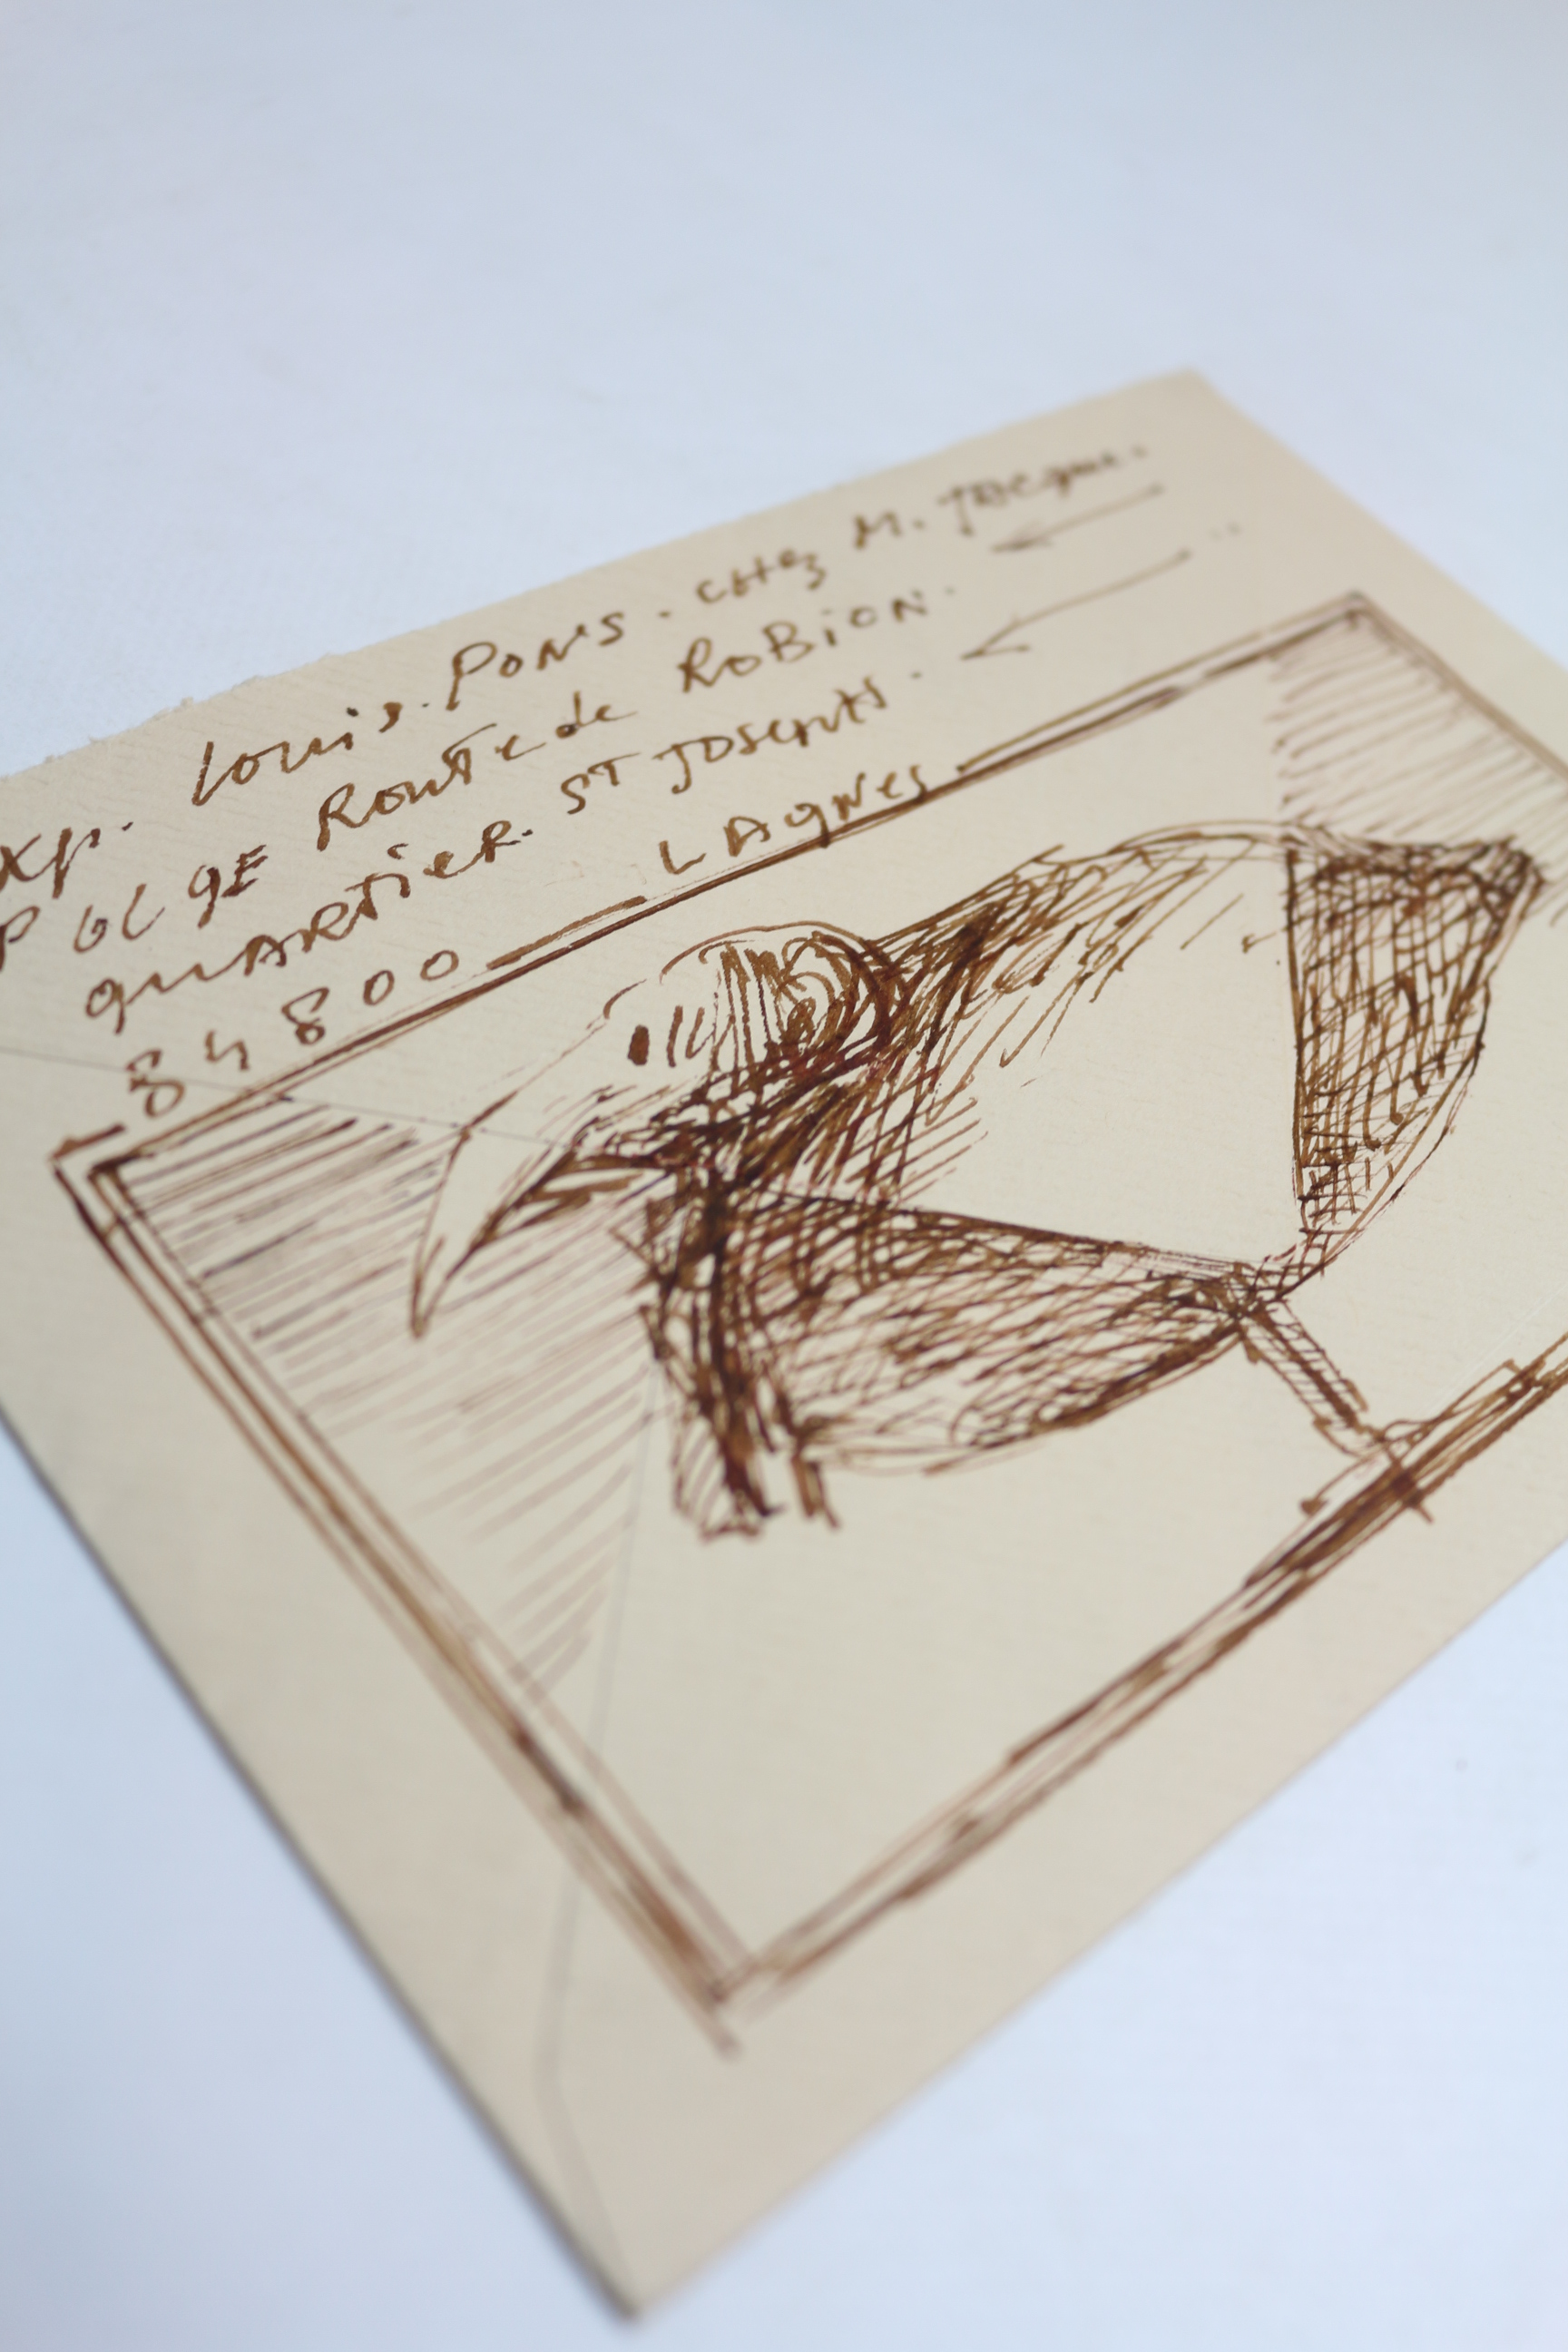 xp. Louis. Pons. CHez M. Jacque.
P 6L 9E Route de RoBion.
quARTieR. ST Josephs.
84800 LAgNes